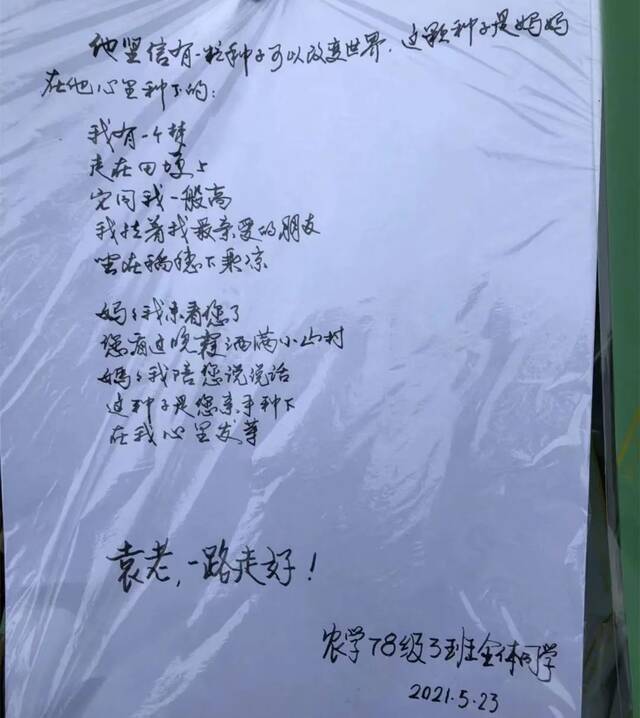 他坚信有一粒种子可以改变世界，这颗种子是妈妈
在他心里种下的：
我有一个梦
走在田埂上
它同我一般高
我拉着我最亲爱的朋友
坐在稻穗下乘凉
妈々我来看您了
您看这晚霞洒满小山村
妈々我陪您说说话
这种子是您亲手种下
在我心里发芽
袁老，一路走好！
农学78级3班全体同学
2021.5.23